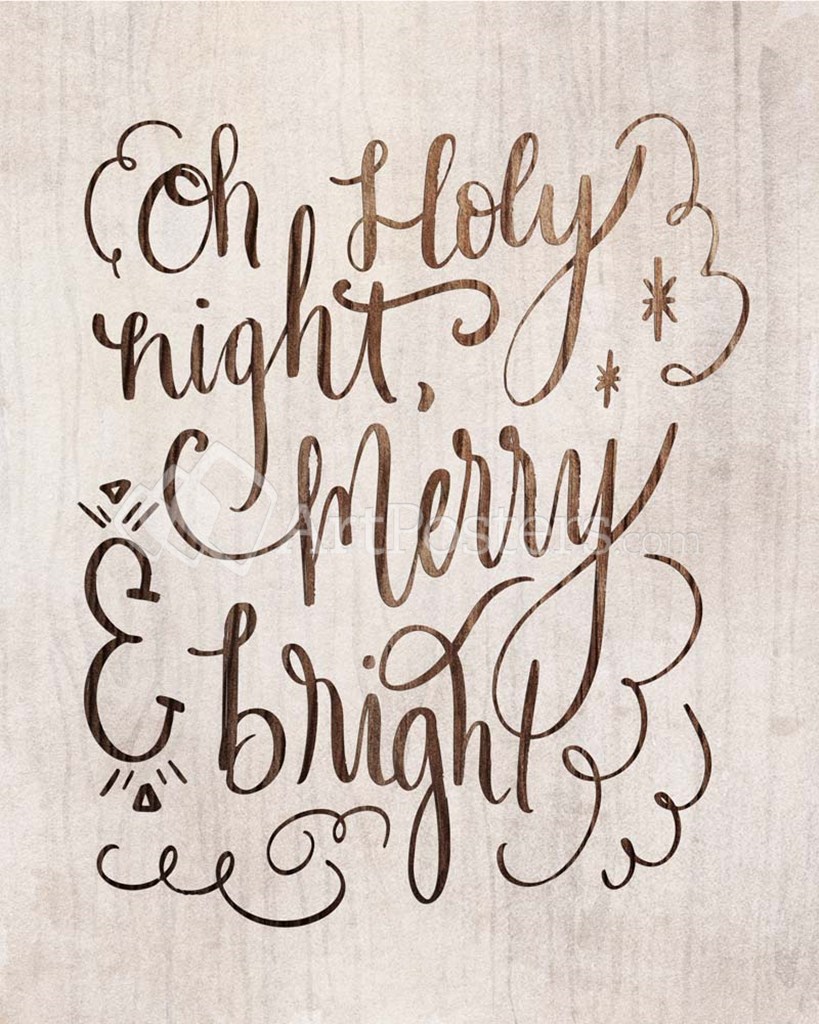 Oh Holy
night,
Merry
&
bright
ArtPosters.com